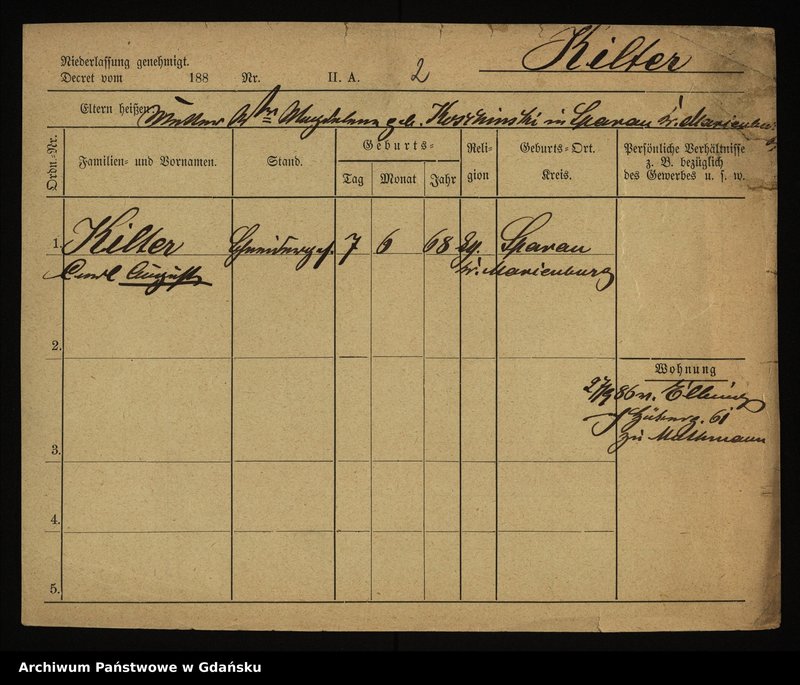 Kilter
Niederlassung genehmigt.
Decret vom 188 Nr. II. A. 2
Eltern heißen Mutter Magdalena geb. Koschinski in Sparau Kr. Marienburg
Ordn.-Nr. Familien- und Vornamen. Stand. Geburts- Tag Monat Jahr Religion Geburts-Ort. Kreis. Persönliche Verhältnisse
z. B. bezüglich
des Gewerbes u. s. w.
1. Kilter Schneiderges. 7 6 68 Ev. Sparau
Carl August Kr. Marienburg
2.
Wohnung
27/9 86 v. Elbing
61
zu Mathmann
3.
4.
5.
Archiwum Państwowe w Gdańsku